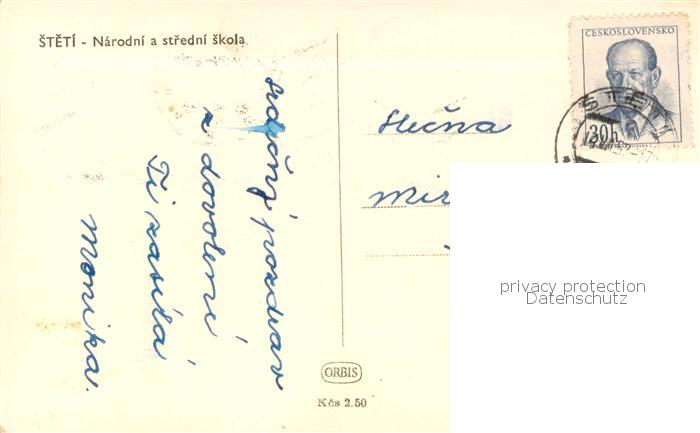 ŠTĚTÍ - Národní a střední škola
Srdečný pozdrav
z dovolené
Ti zasílá
Monika.
ČESKOSLOVENSKO
30h
ŠTĚTÍ
Slečna
privacy protection
Datenschutz
ORBIS
Kčs 2.50